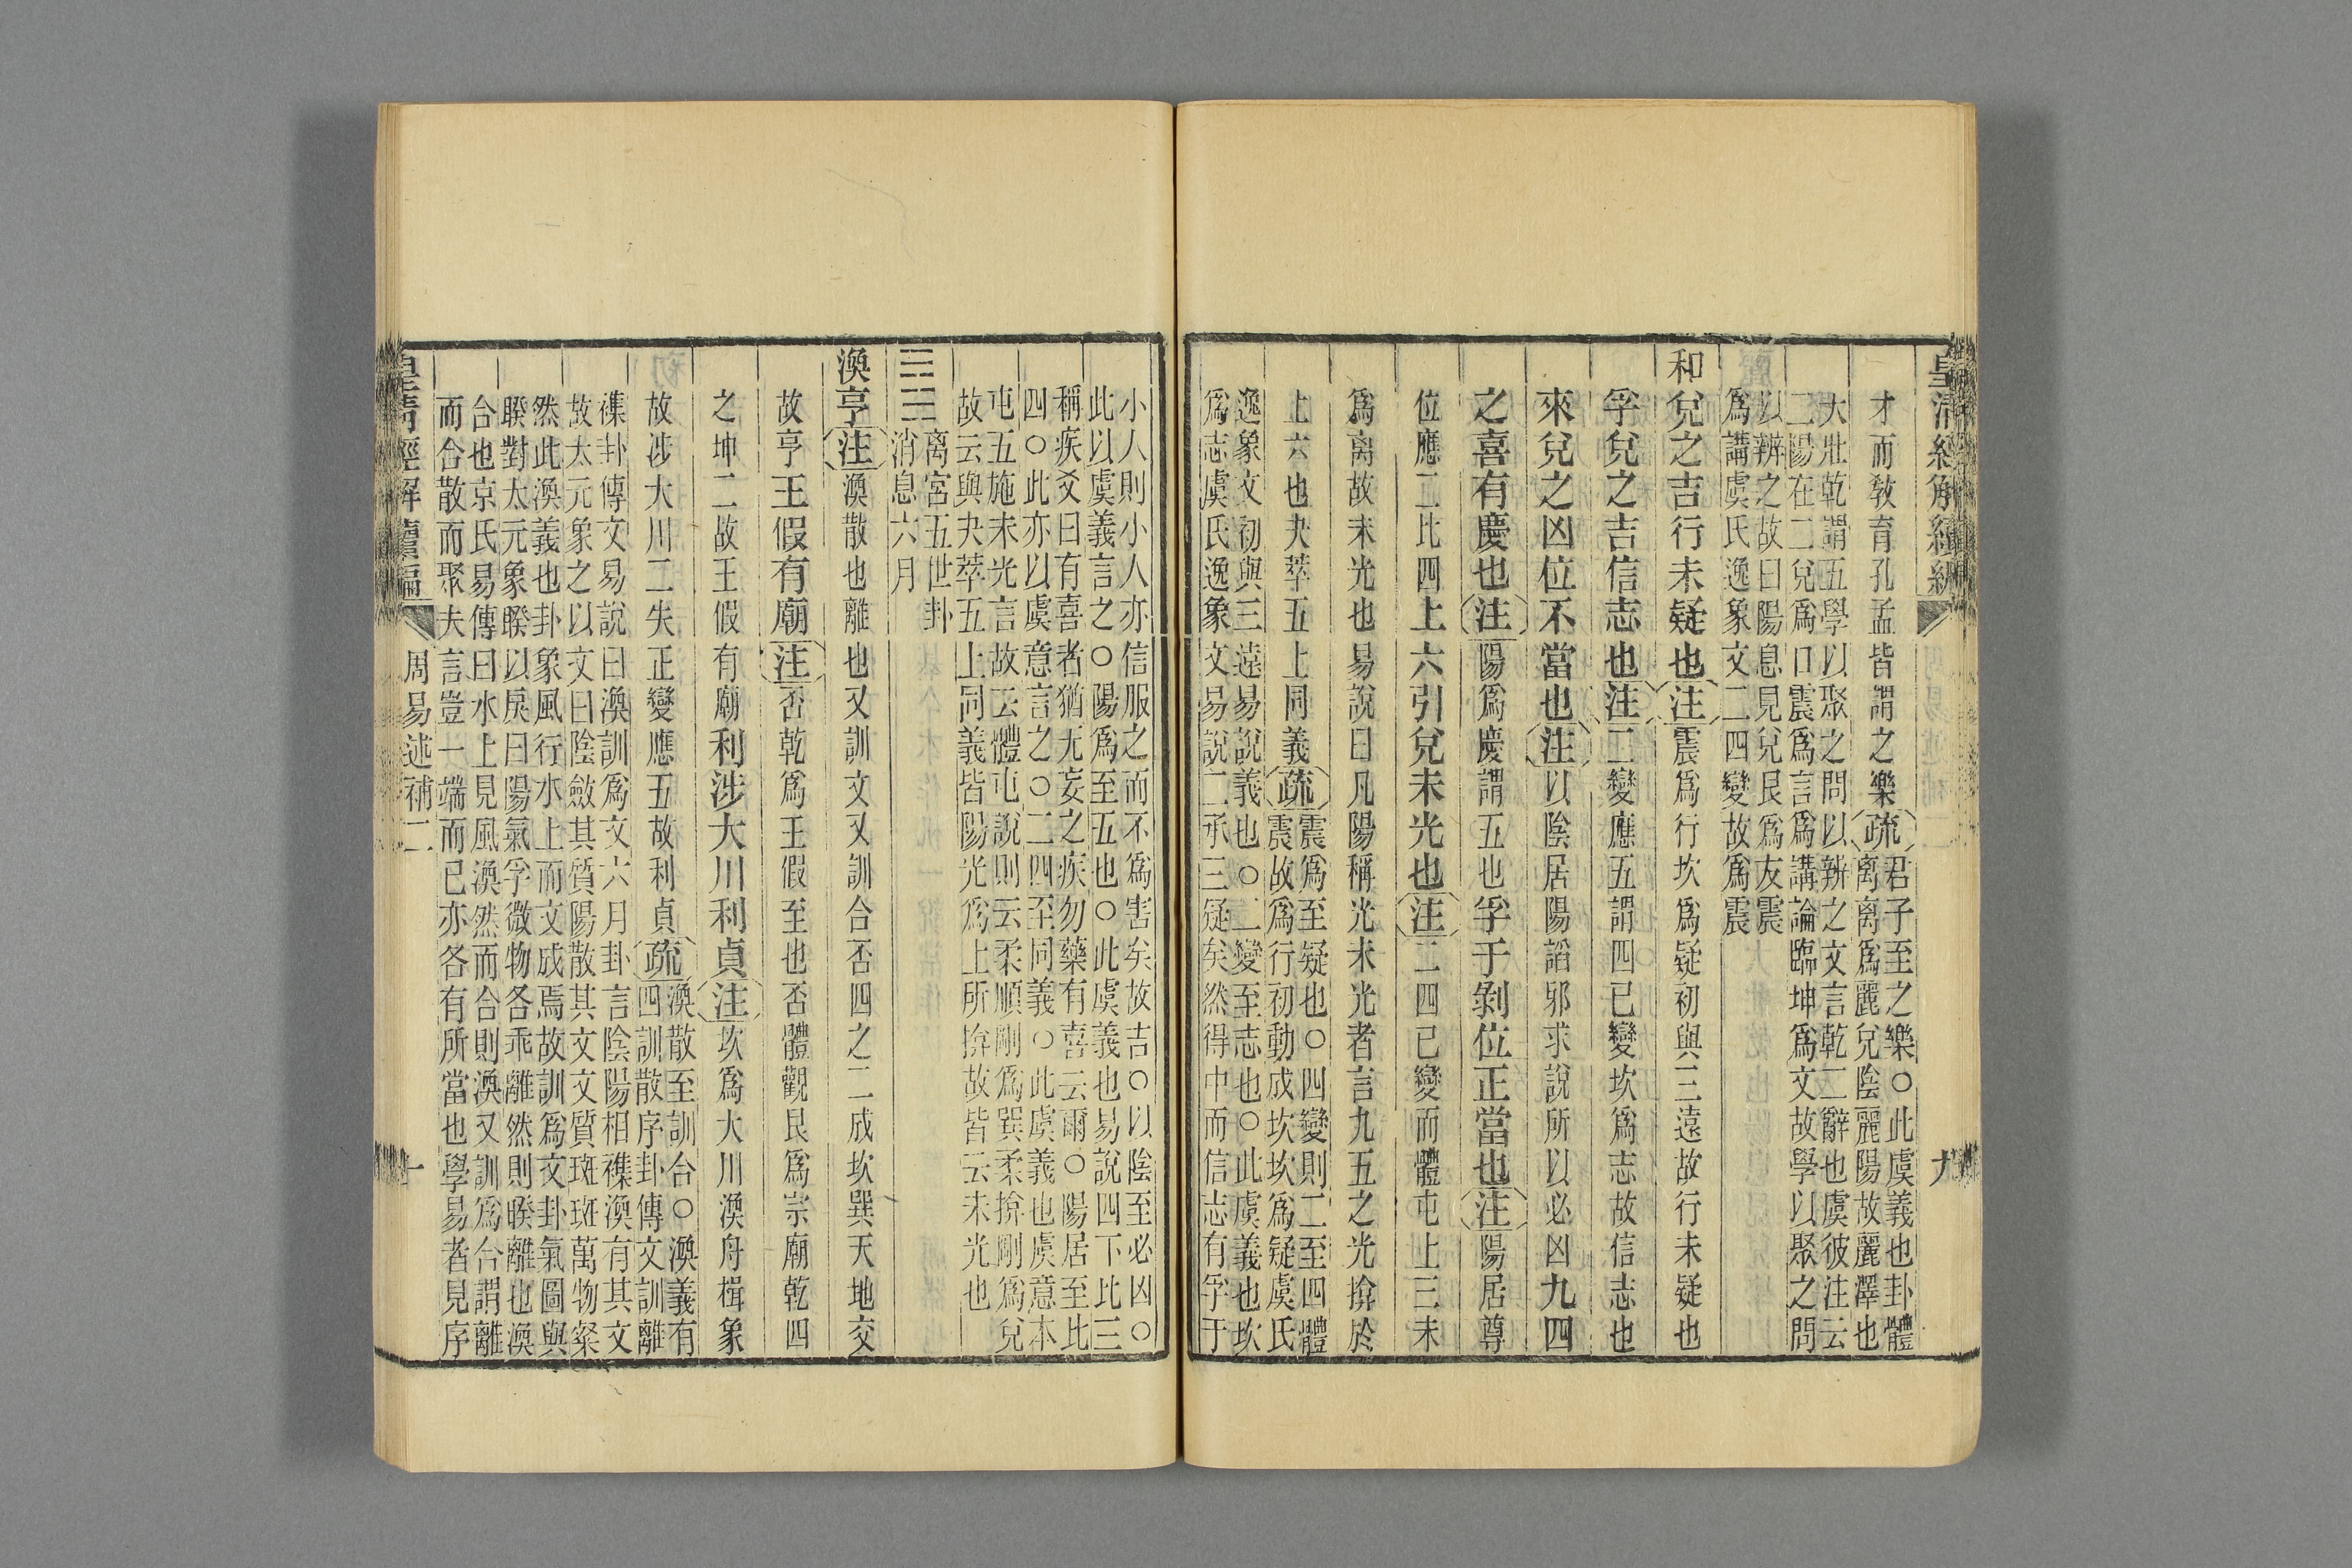 皇清經解續編
九
才而敎育孔孟皆謂之樂疏君子至之樂○此虞義也卦體
離離爲麗兌陰麗陽故麗澤也
大壯乾謂五學以聚之問以辨之文言乾二辭也虞彼注云
二陽在二兌爲口震爲言爲講論臨坤爲文故學以聚之問
以辨之故曰陽息見兌艮爲友震
爲講虞氏逸象文二四變故爲震
和兌之吉行未疑也注震爲行坎爲疑初與三遠故行未疑也
孚兌之吉信志也注二變應五謂四已變坎爲志故信志也
來兌之凶位不當也注以陰居陽諂邪求說所以必凶九四
之喜有慶也注陽爲慶謂五也孚于剝位正當也注陽居尊
位應二比四上六引兌未光也注二四已變而體屯上三未
爲离故未光也易說曰凡陽稱光未光者言九五之光揜於
上六也夬萃五上同義疏震爲至疑也○四變則二至四體
震故爲行初動成坎坎爲疑虞氏
逸象文初與三遠易說義也○二變至志也○此虞義也坎
爲志虞氏逸象文易說二承三疑矣然得中而信志有孚于
小人則小人亦信服之而不爲害矣故吉○以陰至必凶○
此以虞義言之○陽爲至五也○此虞義也易說四下比三
稱疾爻曰有喜者猶无妄之疾勿藥有喜云爾○陽居至比
四○此亦以虞意言之○二四至同義○此虞義也虞意本
屯五施未光言故云體屯說則云柔順剛爲巽柔揜剛爲兌
故云與夬萃五上同義皆陽光爲上所揜故皆云未光也
离宮五世卦
消息六月
渙亨注渙散也離也又訓文又訓合否四之二成坎巽天地交
故亨王假有廟注否乾爲王假至也否體觀艮爲宗廟乾四
之坤二故王假有廟利涉大川利貞注坎爲大川渙舟楫象
故涉大川二失正變應五故利貞疏渙散至訓合○渙義有
四訓散序卦傳文訓離
襍卦傳文易說曰渙訓爲文六月卦言陰陽相襍渙有其文
故太元象之以文曰陰斂其質陽散其文文質斑斑萬物粲
然此渙義也卦象風行水上而文成焉故訓爲文卦氣圖與
睽對太元象睽以戾曰陽氣孚微物各乖離然則睽離也渙
合也京氏易傳曰水上見風渙然而合則渙又訓爲合謂離
而合散而聚夫言豈一端而已亦各有所當也學易者見序
皇淸經解續編
周易述補二